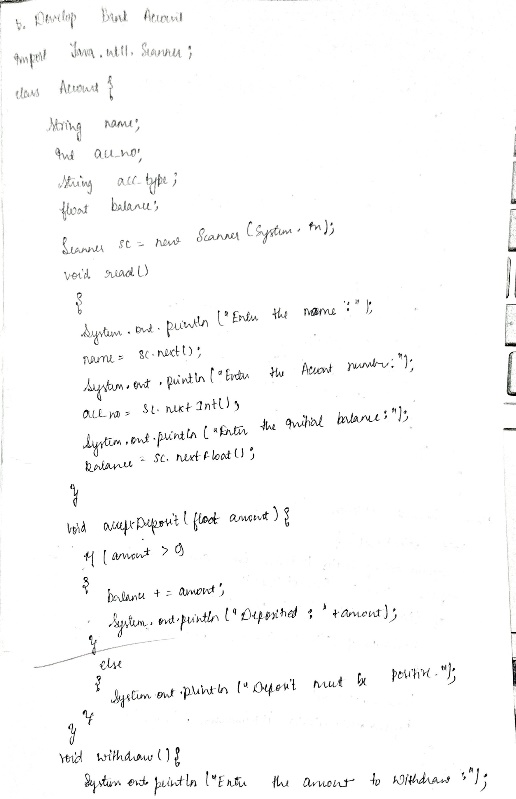 5. Develop Bank Account
import Java.util.Scanner;
class Account {
String name;
int acc_no;
String acc_type;
float balance;
Scanner sc = new Scanner (System.in);
void read()
{
System.out.println ("Enter the name:");
name = sc.next();
System.out.println ("Enter the Account number:");
acc_no = sc.next Int();
System.out.println ("Enter the initial balance:");
balance = sc.next Float();
}
void acceptDeposit (float amount) {
if (amount > 0)
{
balance += amount;
System.out.println ("Deposited : " + amount);
}
else
{
System out.println (" Deposit must be positive.");
}
}
void withdraw () {
System out println ("Enter the amount to withdraw:");